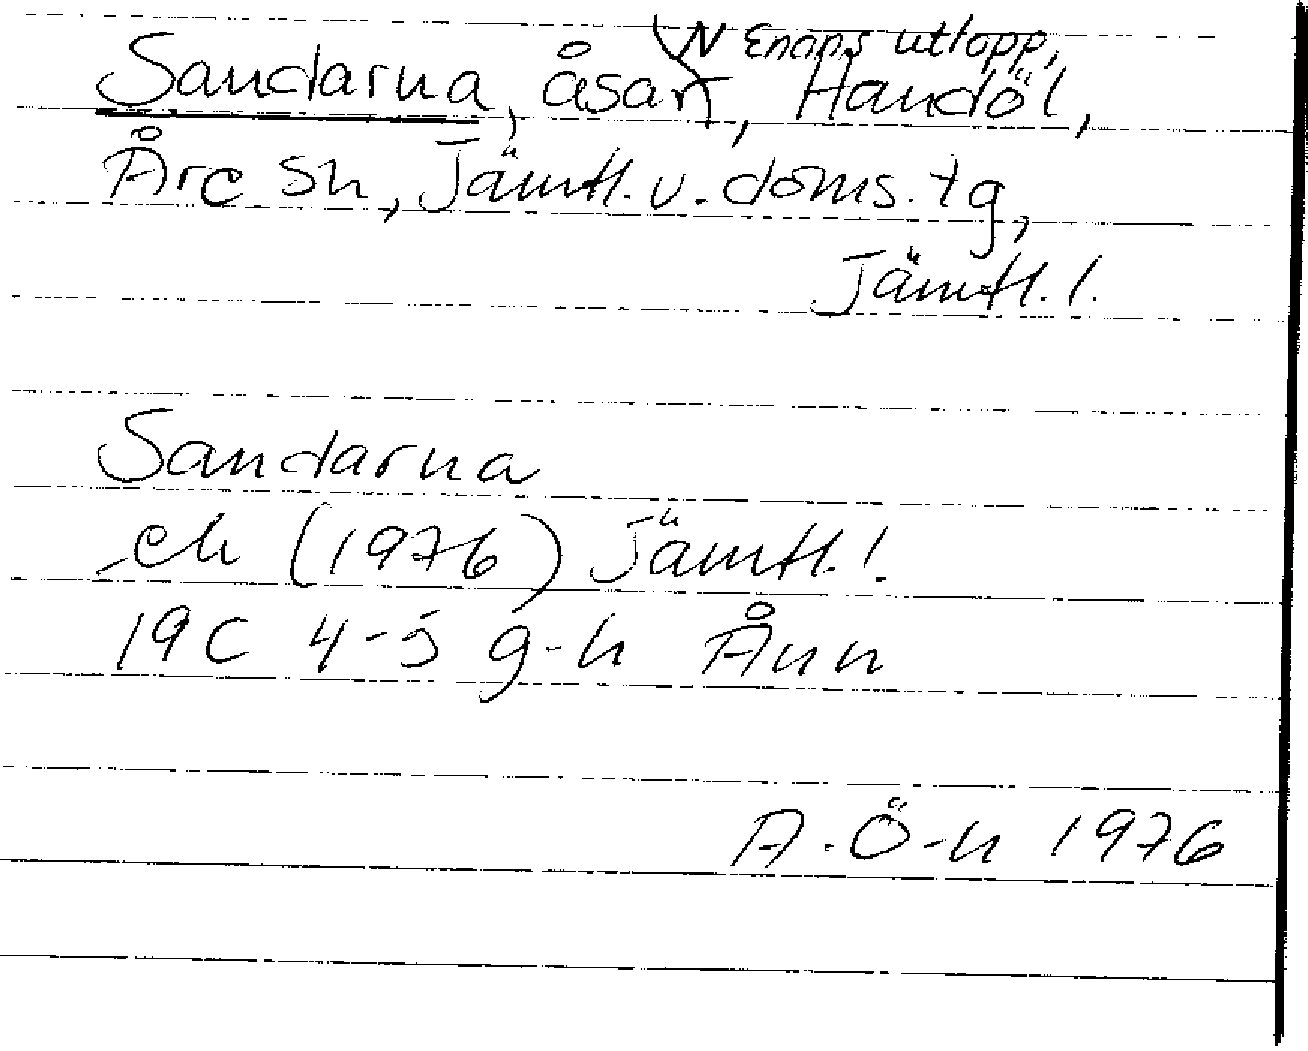 N Enans utlopp,
Sandarna, åsar, Handöl,
Åre sn, Jämtl. v. doms. tg,
Jämtl. l.
Sandarna
ek (1976) Jämtl. l.
19C 4-5 g-h Ånn
A. Ö-n 1976